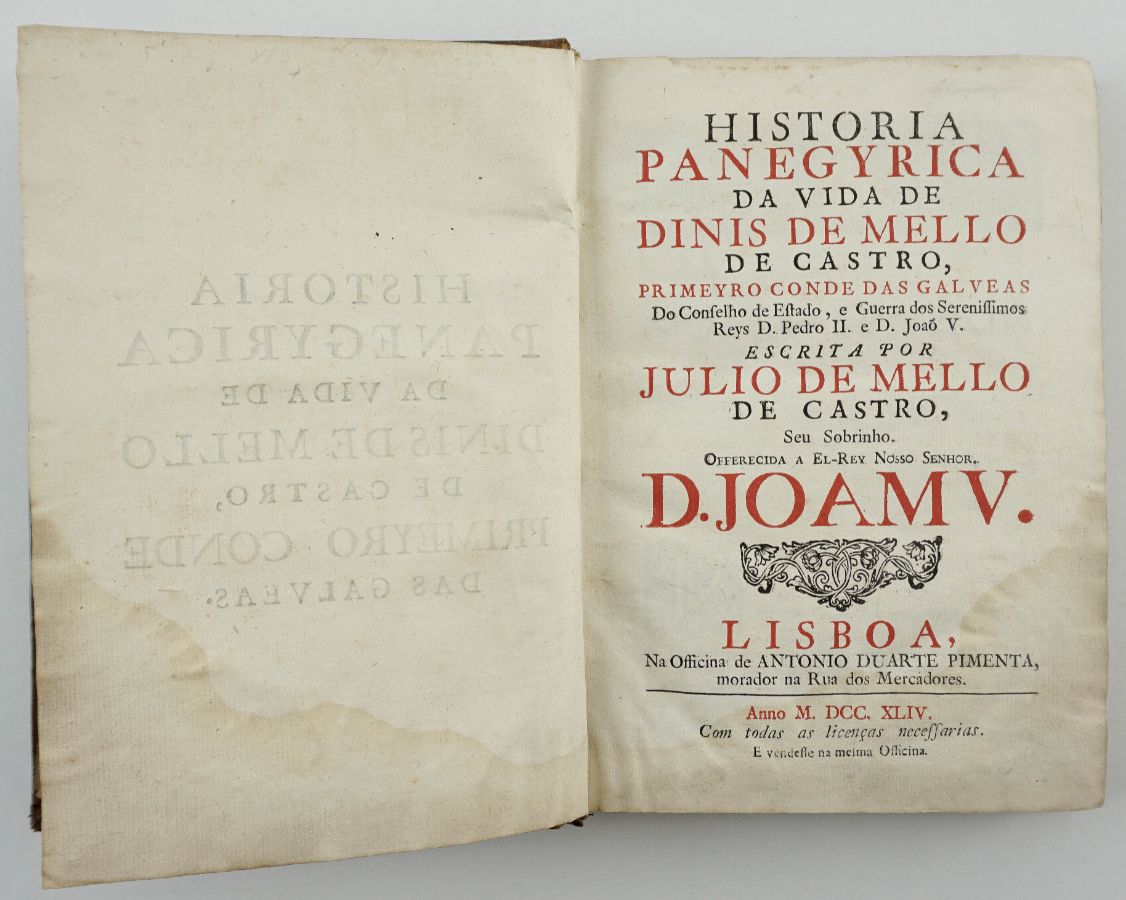 HISTORIA
PANEGYRICA
DA VIDA DE
DINIS DE MELLO
DE CASTRO,
PRIMEYRO CONDE
DAS GALVEAS.
HISTORIA
PANEGYRICA
DA VIDA DE
DINIS DE MELLO
DE CASTRO,
PRIMEYRO CONDE DAS GALVEAS
Do Conſelho de Eſtado, e Guerra dos Sereniſſimos
Reys D. Pedro II. e D. Joaõ V.
ESCRITA POR
JULIO DE MELLO
DE CASTRO,
Seu Sobrinho.
OFFERECIDA A EL-REY NOSSO SENHOR.
D. JOAM V.
LISBOA,
Na Officina de ANTONIO DUARTE PIMENTA,
morador na Rua dos Mercadores.
Anno M. DCC. XLIV.
Com todas as licenças neceſſarias.
E vendeſſe na meſma Officina.